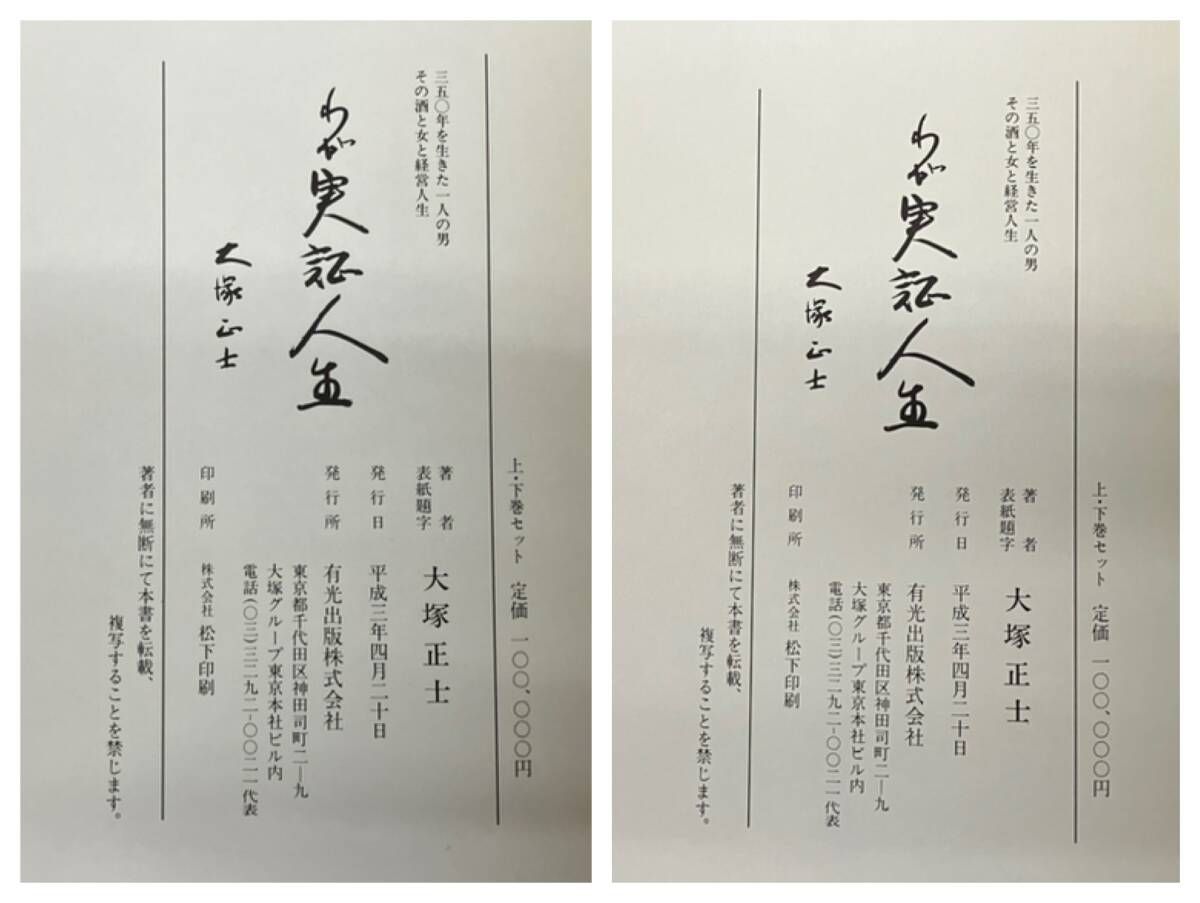 上・下巻セット 定価 一〇〇、〇〇〇円
三五〇年を生きた一人の男
その酒と女と経営人生
わが実証人生
大塚正士
著者 大塚正士
表紙題字
発行日 平成三年四月二十日
発行所 有光出版株式会社
東京都千代田区神田司町二―九
大塚グループ東京本社ビル内
電話(〇三)三二九二-〇〇二一代表
印刷所 株式会社 松下印刷
著者に無断にて本書を転載、
複写することを禁じます。
上・下巻セット 定価 一〇〇、〇〇〇円
三五〇年を生きた一人の男
その酒と女と経営人生
わが実証人生
大塚正士
著者 大塚正士
表紙題字
発行日 平成三年四月二十日
発行所 有光出版株式会社
東京都千代田区神田司町二―九
大塚グループ東京本社ビル内
電話(〇三)三二九二-〇〇二一代表
印刷所 株式会社 松下印刷
著者に無断にて本書を転載、
複写することを禁じます。